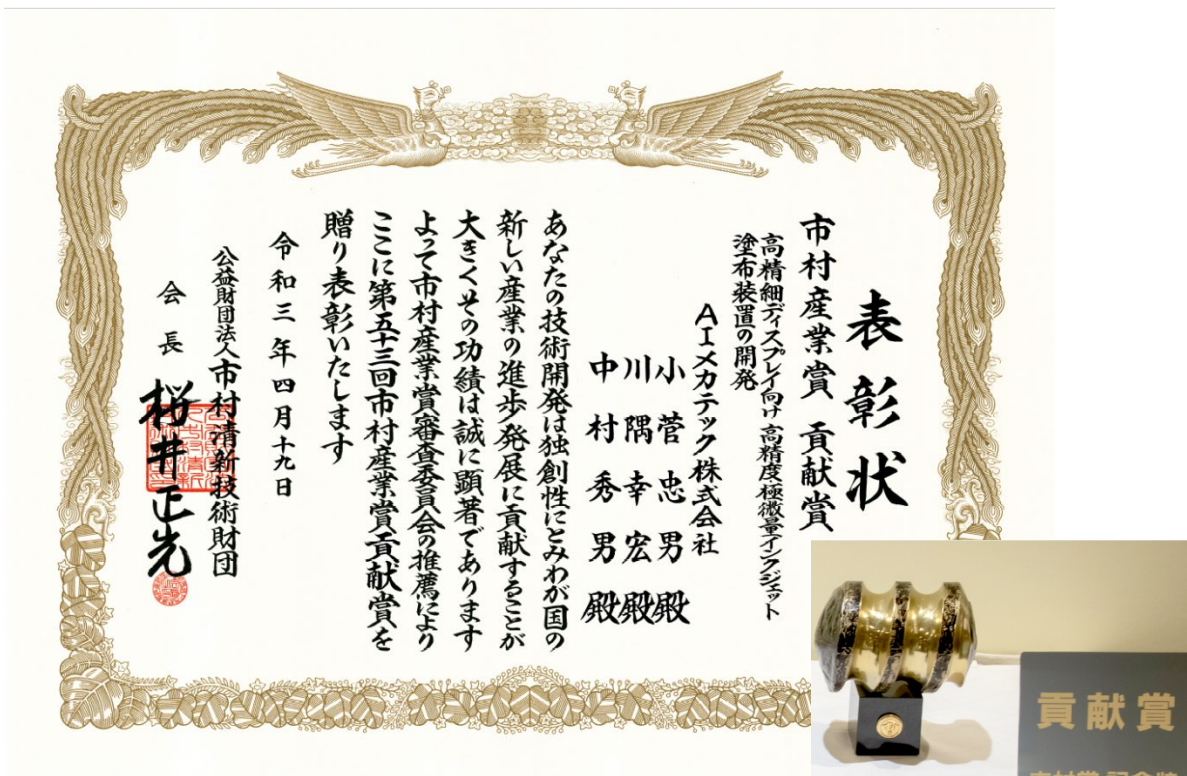 表彰状
市村産業賞 貢献賞
高精細ディスプレイ向け高精度極微量インクジェット
塗布装置の開発
AIメカテック株式会社
小菅忠男殿
川隅幸宏殿
中村秀男殿
あなたの技術開発は独創性にとみわが国の
新しい産業の進歩発展に貢献することが
大きくその功績は誠に顕著であります
よって市村産業賞審査委員会の推薦により
ここに第五十三回市村産業賞貢献賞を
贈り表彰いたします
令和三年四月十九日
公益財団法人市村清新技術財団
会長 桜井正光
貢献賞